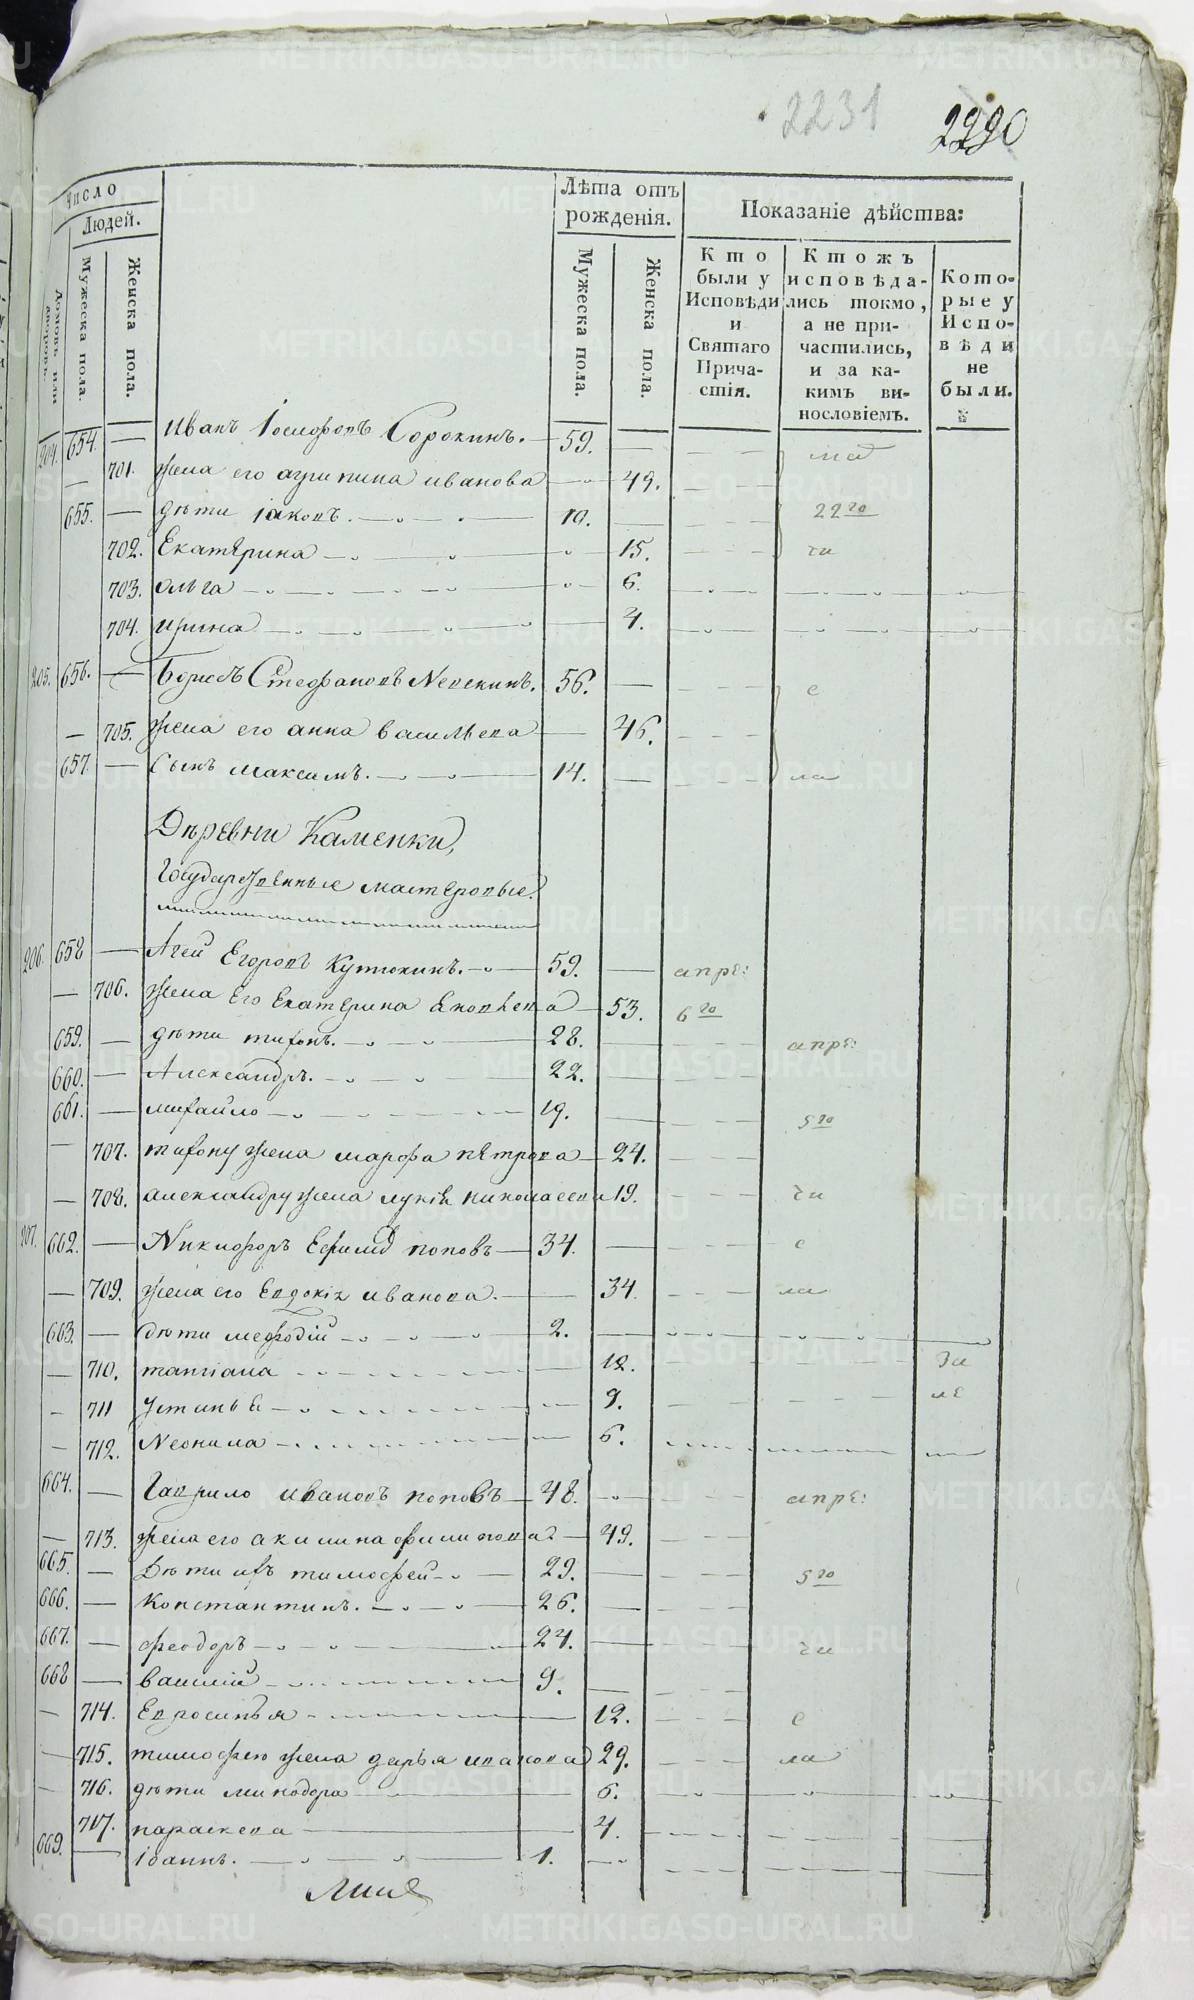 2231
2290
Число
Людей.
Домовъ или дворовъ.
Мужеска пола.
Женска пола.
Лѣта отъ рожденія.
Мужеска пола.
Женска пола.
Показаніе дѣйства:
Кто были у Исповѣди и Святаго Причастія.
Ктожъ исповѣдались токмо, а не причастились, и за какимъ винословіемъ.
Которые у Исповѣди не были.
204. 654. — Иванъ Сорокинъ. — 59. — ма
— 701. жена его агрипина иванова — 49.
655. — дѣти іаковъ. — 19. — 22го
702. Екатерина — 15. — чи
703. ольга — 6.
704. ирина — 4.
205. 656. — Борисъ Стефановъ 56. — с
— 705. жена его анна васильева — 46.
657. — Сынъ максимъ. — 14. — ла
Дѣревни Каменки,
Государственные мастеровые.
206. 658 — Агей Егоровъ Кутюкинъ. — 59. — апре:
— 706. жена Его Екатерина Яковлева — 53. 6го
659. — дѣти тихонъ. — 28. — апре:
660. — Александръ. — 22.
661. — михайло — 19. — 5го
— 707. тихону жена марфа пЕтрова — 24.
— 708. александру жена лукія николаева 19. чи
207. 662. — Никифоръ Ефимов поповъ — 34. — с
— 709. жена его Евдокія иванова. — 34. ла
663. — дѣти мефодій — 2. —
— 710. татіана — 12. за
— 711 Устинья — 9. ле
— 712. Неонила — 6.
664. — Гаврило ивановъ поповъ — 48. апре:
— 713. жена его акилина филипова — 49.
665. — Дѣти ихъ тимофей — 29. — 5го
666. — Константинъ. — 26. —
667. — феодоръ — 24. — чи
668 — василій — 9. —
— 714. Евросинья — 12. с
— 715. тимофею жена дарья иванова 29. ла
— 716. дѣти минодора — 6.
717. параскева — 4.
669. — іоаннъ. — 1.